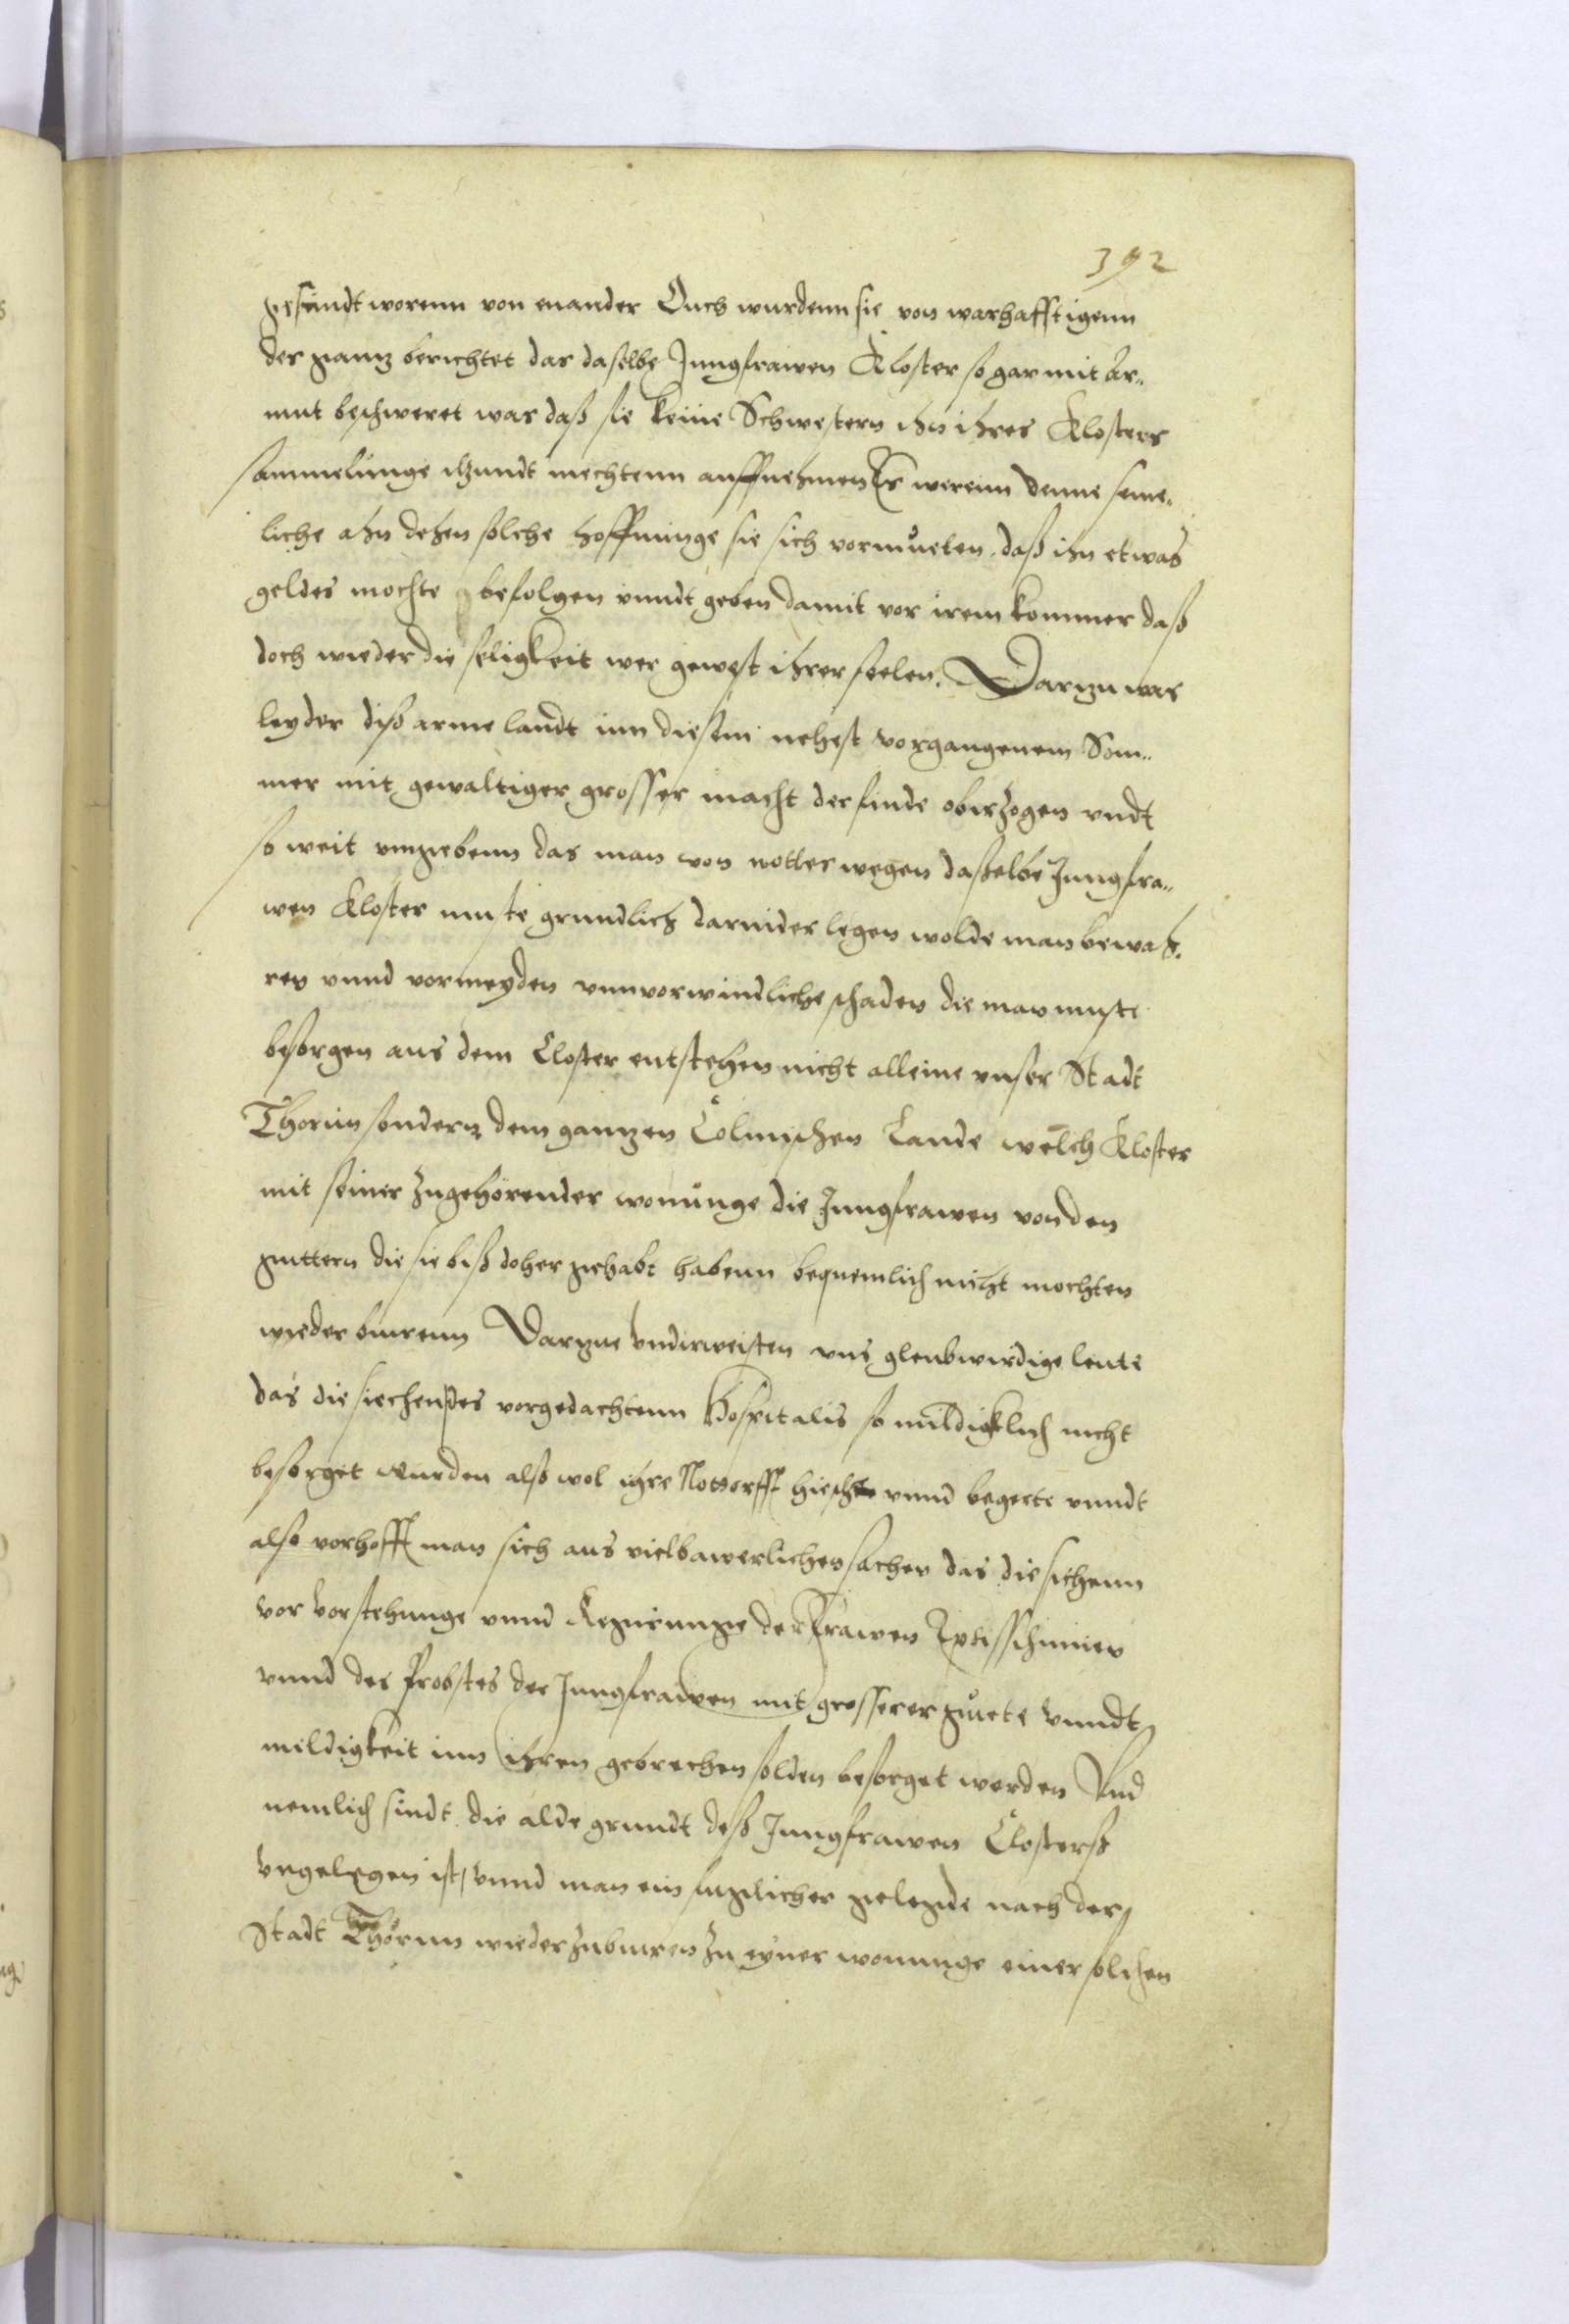 392
gesundt worenn von enander Ouch wurdenn sie von warhafftigenn
der gantz berichtet das daselbe Jungfrawen Kloster so gar mit Ar„
mut beschweret was daß sie keine Schwestern ihn ihres Klosters
sammelunge itzundt mechtenn auffnehmen Es werenn denne seme„
liche ahn dehen solche hoffnunge sie sich vormueten daß ihn etwas
geldes mochte befolgen vnndt geben damit vor irem kommer daß
doch wieder die seligkeit wer gewest ihrer seelen. Dartzu was
leyder diß arme landt inn diesem nehest vorgangenem Som„
mer mit gewaltiger grosser macht der finde oberzogen vndt
so weit vmgebenn das man von notter wegen dasselbe Jungfra„
wen Kloster muste grundlich darnider legen wolde man bewah„
ren vnnd vormeyden vnnvorwindliche schaden die man muste
besorgen aus dem Closter entstehen nicht alleine vnser Stadt
Thorun sondern dem gantzen Colmischen Lande welch Kloster
mit seiner zugehorender wonunge die Jungfrawen von den
guttern die sie biß doher gehabt habenn bequemlich nicht mochten
wieder buwenn Dartzue vndirweisten vns glaubwirdige leute
das die siechen des vorgedachtenn Hospitalis so mildigklich nicht
besorget wurden also wol ihre Notdorfft hiesche vnnd begerte vnndt
also vorhofft man sich aus vielbawerlichen sachen das die sichenn
vor vorstehunge vnnd Regirunge der Frawen Eptisschinnen
vnnd des Probstes der Jungfrawen mit grosserer guete vnndt
mildigkeit inn ihren gebrechen solden besorget werden Vnd
nemlich sindt die alde grundt deß Jungfrawen Closterß
vngelegen ist, vnnd man ein fuglicher gelegde nach der
Stadt Thorun wieder zubuwen zu eyner wonunge einer solchen